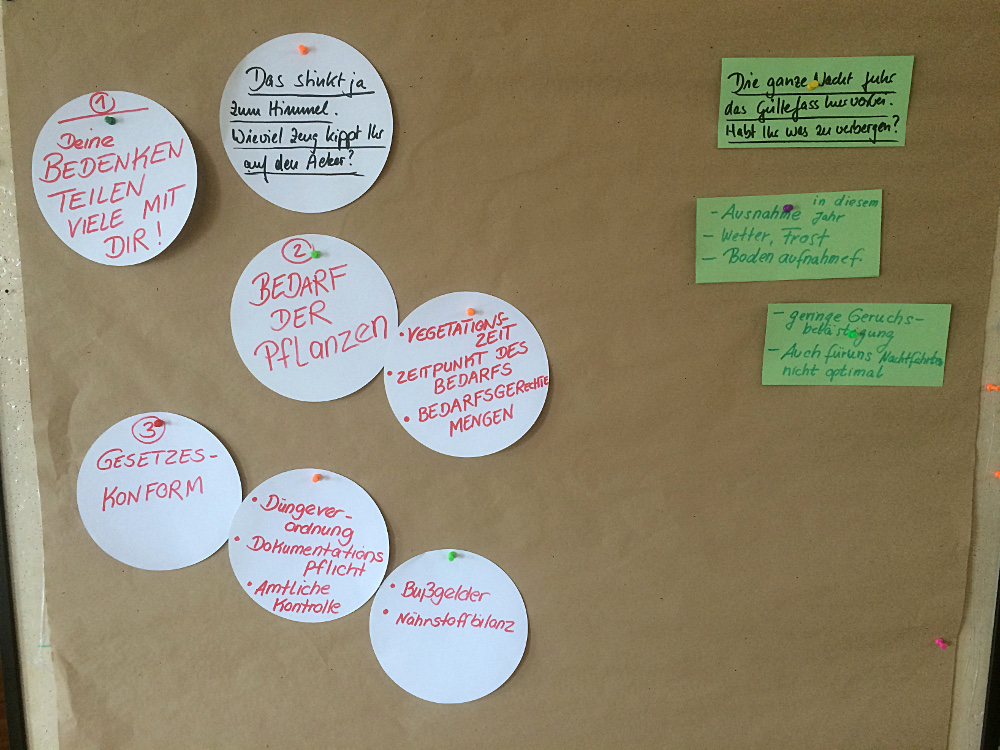 Das stinkt ja
zum Himmel.
Wieviel Zeug kippt Ihr
auf den Acker?
1
Deine
BEDENKEN
TEILEN
VIELE MIT
DIR!
2
BEDARF
DER
PFLANZEN
• VEGETATIONS-
ZEIT
• ZEITPUNKT DES
BEDARFS
• BEDARFSGERechte
MENGEN
3
GESETZES-
KONFORM
• Düngever-
ordnung
• Dokumentations
pflicht
• Amtliche
Kontrolle
• Bußgelder
• Nährstoffbilanz
Die ganze Nacht fuhr
das Güllefass hier vorbei.
Habt Ihr was zu verbergen?
- Ausnahme in diesem
Jahr
- Wetter, Frost
- Boden aufnahmef.
- geringe Geruchs-
belästigung
- Auch für uns Nachtfahrten
nicht optimal